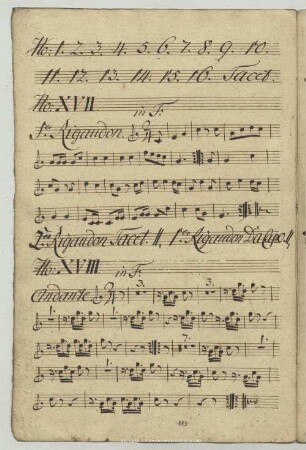 No: 1. 2. 3. 4. 5. 6. 7. 8. 9. 10.
11. 12. 13. 14. 15. 16. Tacet.
No: XVII
in F:
1.er Rigaudon.
2.en Rigaudon Tacet. ||, 1.er Rigaudon Da Capo. ||
No: XVIII
in F:
Andante
3.
3.
1.
1.
7.
1.